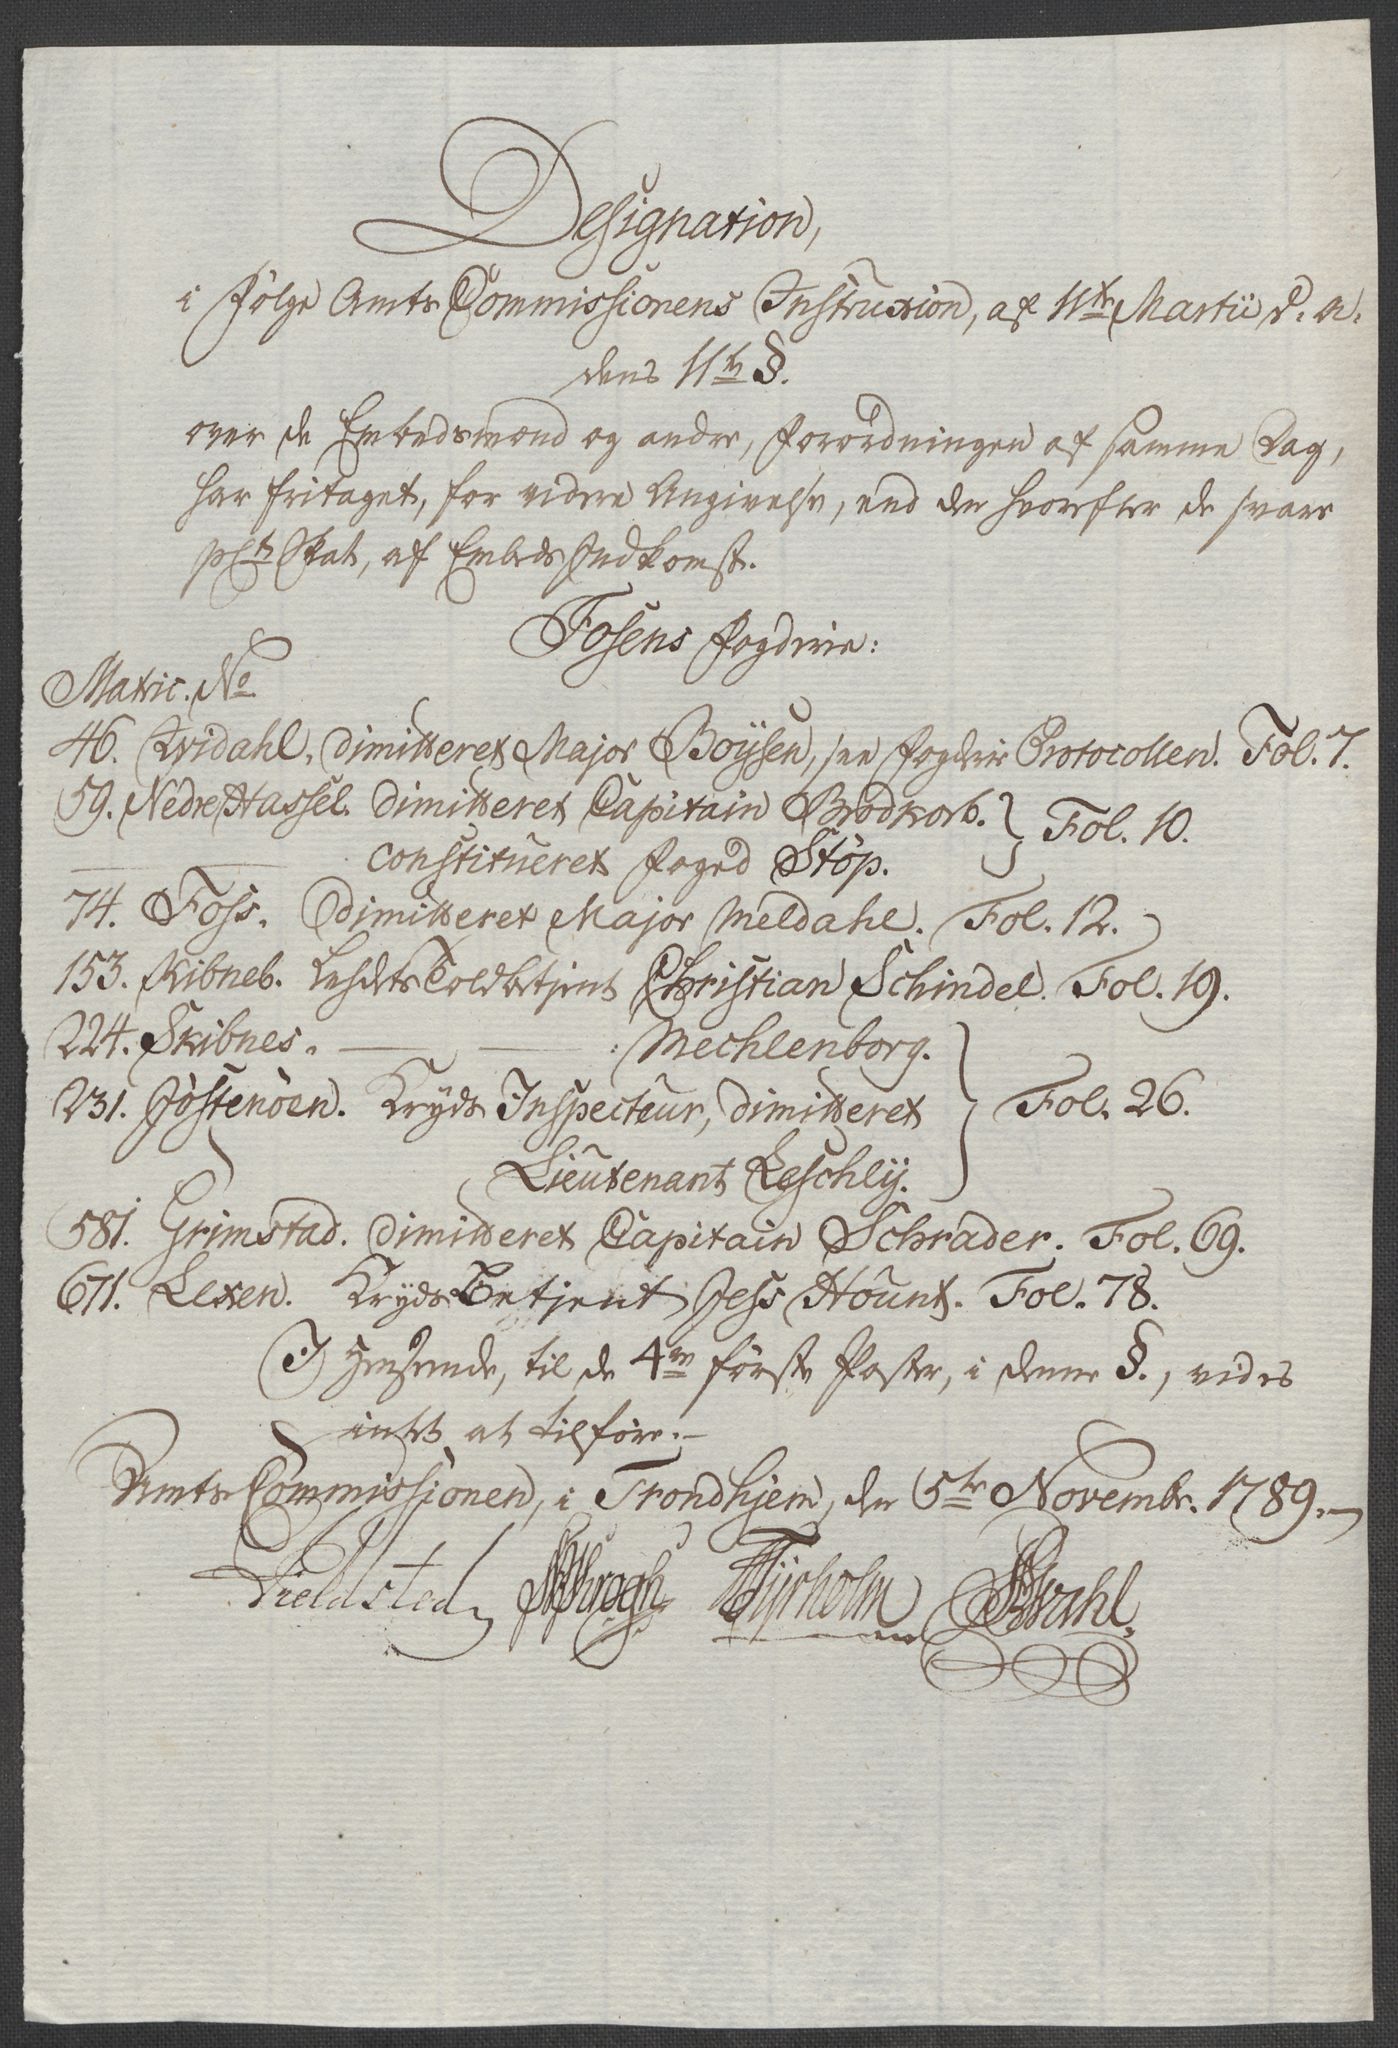 Designation,
i Følge Amts Commissionens Instruxion, af 11te Martii d. a.
dens 11te §.
over de Embedsmænd og andre, Forordningen af samme Dag,
har fritaget, for videre Angivelse, end den hvorefter de svare
pCt Skat, af Embeds Indkomst.
Fosens Fogderie:
Matric. No
46. Qvidahl. Dimitteret Major Boÿsen, see Fogderie Protocollen. Fol. 7.
59. Nedre Hassel. Dimitteret Capitain Brodkorb. } Fol. 10.
constitueret Foged Stöp.
74. Foss. Dimitteret Major Meldahl. Fol. 12.
153. Kibneb. Toldbetjent Christian Schindel. Fol. 19.
224. Skibnes. — — : Mechlenborg.
231. Jöstenöen. Kryds Inspecteur, dimitteret } Fol. 26.
Lieutenant Leschlÿ.
581. Grimstad. Dimitteret Capitain Schrader. Fol. 69.
671. Lexen. Kryds Betjent Jess Hount. Fol. 78.
I Henseende, til de 4re første Poster, i denne §., vides
intet at tilføre.—
Amts Commissionen, i Trondhjem, den 5te Novembr. 1789.—
Fieldsted Krogh Tÿrholm Wahl.